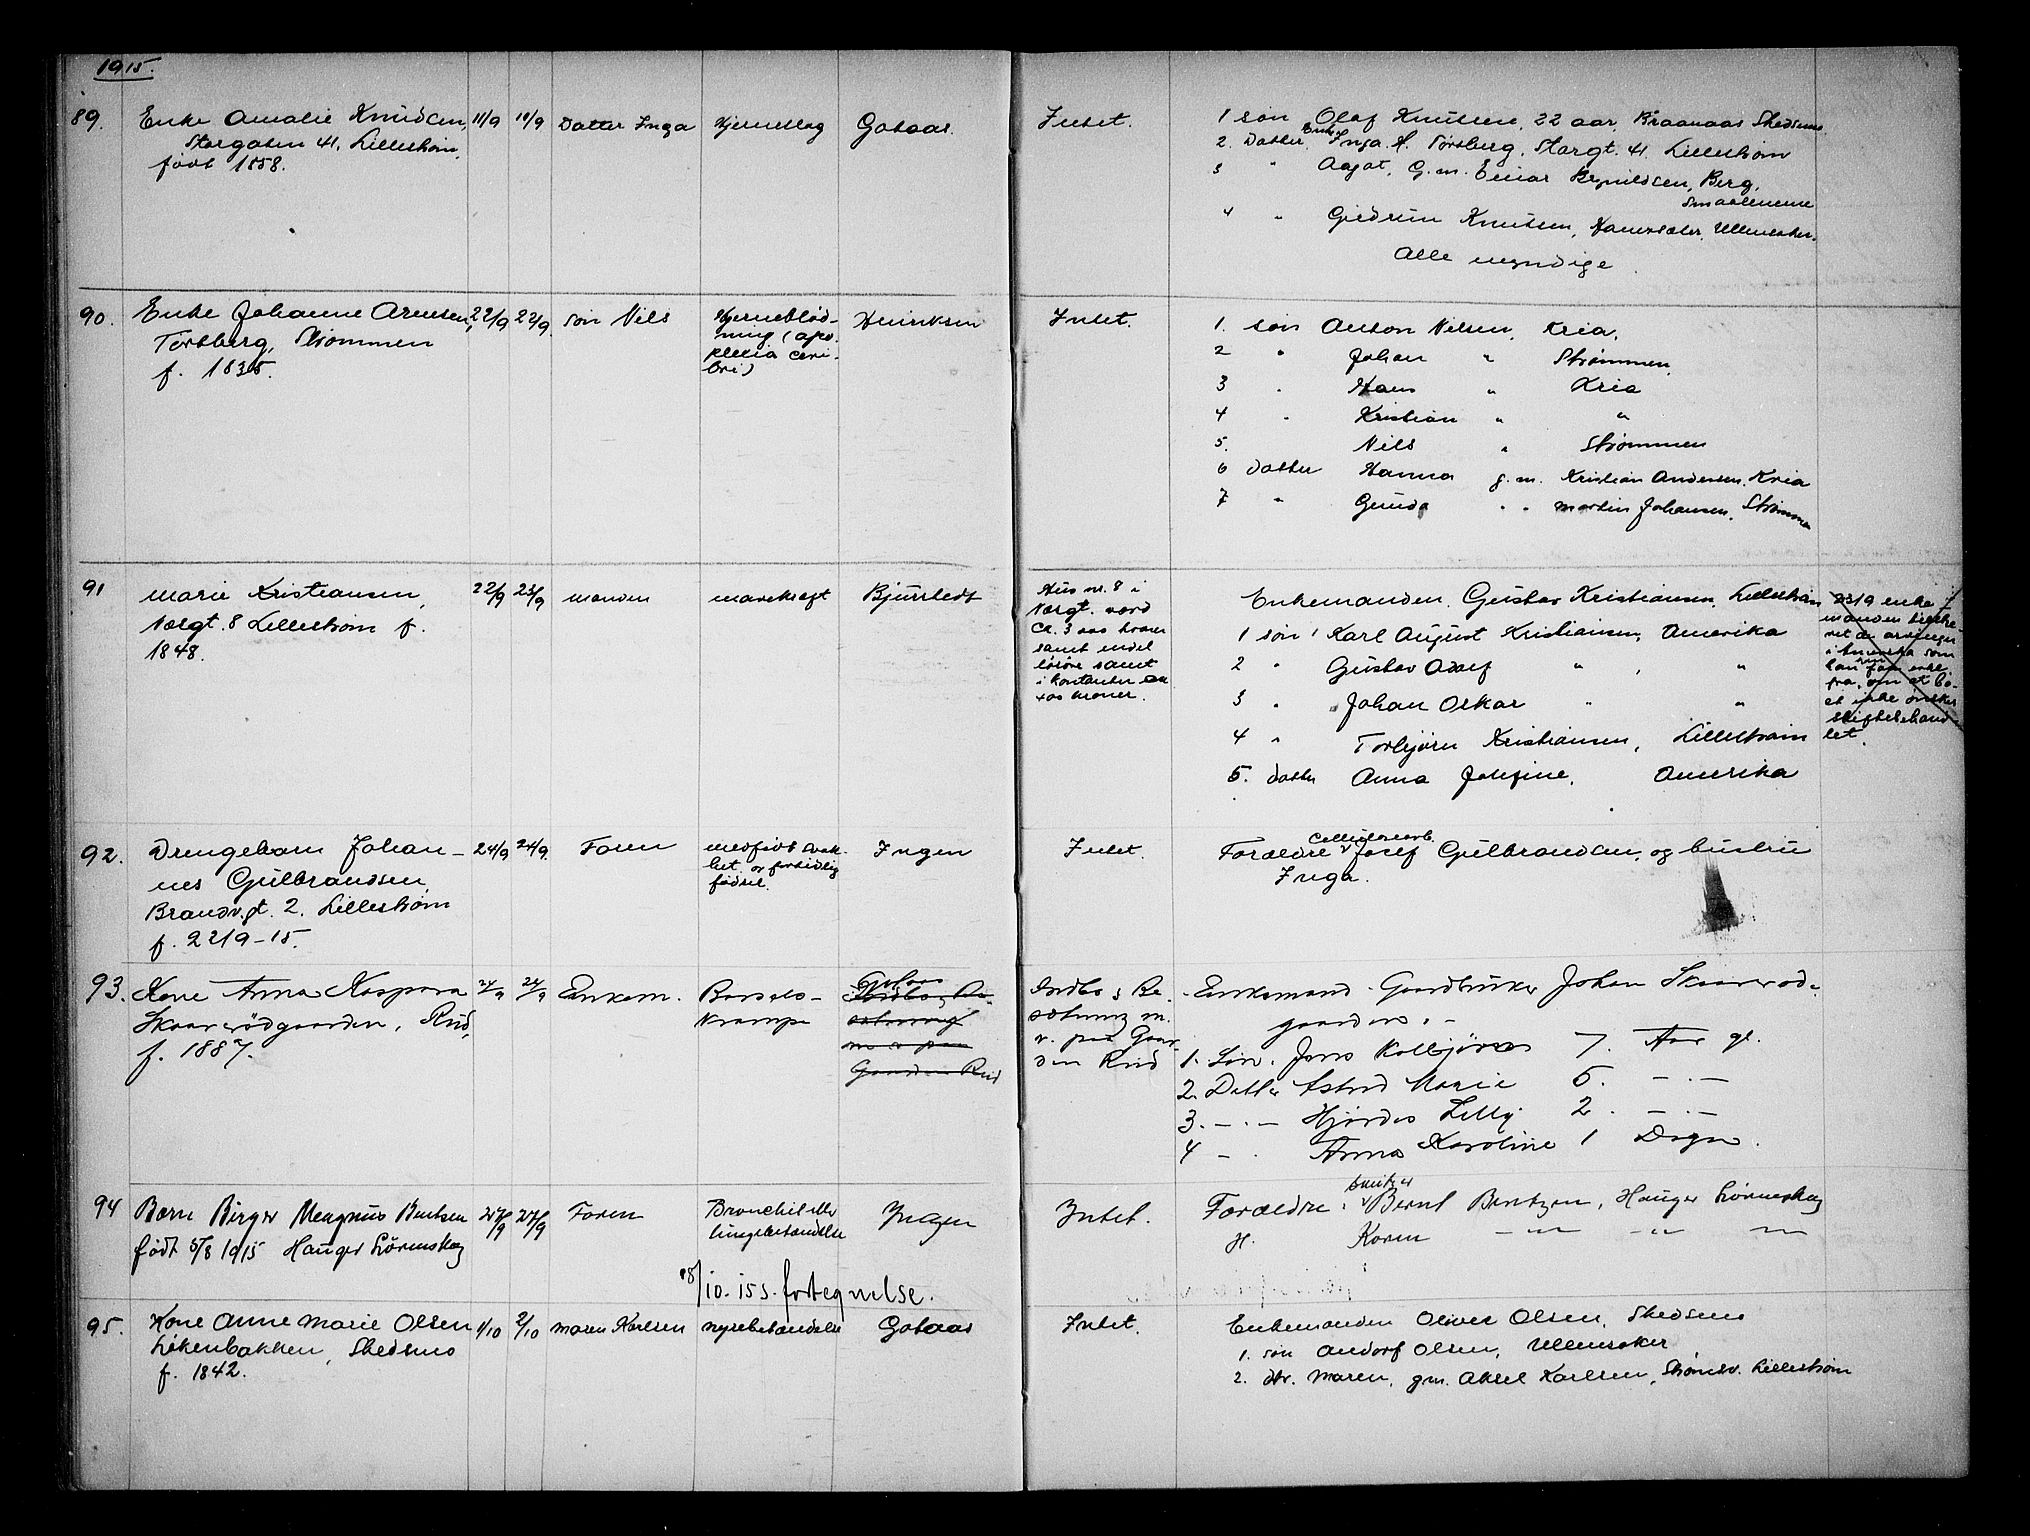 1915.
89.
Enke Amalie Knudsen,
Storgaten 41, Lillestrøm,
født 1858.
11/9
11/9
Datter Inga
Hjerneslag
Gotaas.
Intet.
1 søn Olaf Knutsen, 22 aar, Braanaas Skedsmo
2. Datter, Enke Inga A. Torsberg, Storgt. 41. Lillestrøm
3 " Aagot, G.m. Einar Brynildsen, Berg,
Smaalenene
4 " Gudrun Knutsen, Ullensaker.
Alle myndige
90.
Enke Johanne Arnesen,
Torsberg, Strømmen
f. 1835.
22/9
22/9
søn Nils
Hjerneblød-
ning (apo-
plexia ceri-
bri)
Henriksen
Intet.
1. søn Anton Nilsen, Kria,
2 " Johan " Strømmen,
3 " Hans " Kria
4 " Kristian " "
5. Nils " Strømmen
6 datter Hanna g.m. Kristian Andersen, Kria
7 " Gunda " " Martin Johansen, Strømmen
91
Marie Kristiansen,
Vælgt. 8 Lillestrøm f.
1848.
22/9
23/9
manden
mavekræft
Bjürstedt
Hus nr. 8 i
værd
ca. 3000 kroner
samt endel
løsøre samt
i kontanter ca
kroner.
Enkemanden Gustav Kristiansen, Lillestrøm
1 søn Karl August Kristiansen, Amerika
2 " Gustav Adolf " , "
3 " Johan Oskar " "
4 " Torbjørn Kristiansen, Lillestrøm
5. datter Anna Josefine, Amerika
23/9 enke-
manden
ret de arvinger
i Amerika som
han
fra, om at bo-
et ikke ønskes
skiftebehand-
let.
92.
Drengebarn Johan-
nes Gulbrandsen,
Brandv.gt. 2. Lillestrøm
f. 22/9-15.
24/9
24/9
Faren
medfødt svak-
het og fortidlig
fødsel.
Ingen
Intet.
Cellulosearb.
Forældre Josef Gulbrandsen, og hustru
Inga.
93.
Kone Anna Kaspara
Skaarerødgaarden, Rud,
f. 1887.
24/9
24/9
Enkem.
Barsels-
krampe
Gotaas
Indbo, Be-
sætning
m v paa
Gaarden Rud
Indbo & Be-
sætning m.
v. paa Gaar-
den Rud
Enkemand Gaardbruker Johan Skaarerød-
gaarden. -
1. Søn. Jens Kolbjørn 7. Aar gl.
2. Datter Astrid Marie 5. - . -
3. - . - Hjørdis Lilly 2. - . -
4 - . Anna Karoline 1 Døgn.
94
Barn Birger Magnus Bentsen
født 5/8 1915 Hauger Lørenskog
27/9
27/9
Faren
Bronchit eller
lungebetændelse
Ingen
Intet.
Forældre: Bernt Bentzen, Hauger Lørenskog
H. Karen - " - - " - - " -
18/10-15 s. fortegnelse.
95.
Kone Anne Marie Olsen
Løkenbakken, Skedsmo
f. 1842.
1/10
2/10
Maren Karlsen
nyrebetændelse
Gotaas
Intet.
Enkemanden Oliver Olsen, Skedsmo
1. søn Andorf Olsen, Ullensaker
2. dtr. Maren, gm. Aksel Karlsen, Lillestrøm